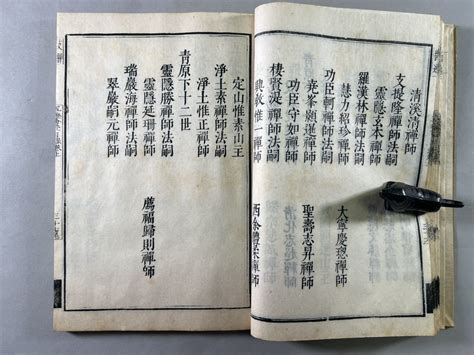 清溪清禪師
支提隆禪師法嗣
靈隱玄本禪師
羅漢林禪師法嗣
慧力紹珍禪師 大寧慶璁禪師
功臣軻禪師法嗣
堯峯顥暹禪師 聖壽志昇禪師
功臣守如禪師
棲賢湜禪師法嗣
興教惟一禪師 西余體柔禪師
定山惟素山主
淨土素禪師法嗣
淨土惟正禪師
青原下十二世
靈隱勝禪師法嗣
靈隱延珊禪師 薦福歸則禪師
瑞巖海禪師法嗣
翠巖嗣元禪師